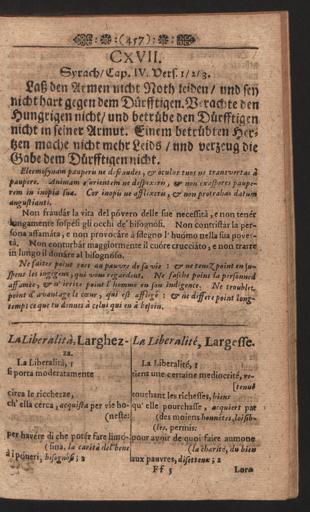 (457)
CXVII.
Syrach/ Cap. IV. Vers. 1/2/3.
Laß den Armen nicht Noth leiden/ und sey
nicht hart gegen dem Dürfftigen. Verachte den
Hungrigen nicht/ und betrübe den Dürfftigen
nicht in seiner Armut. Einem betrübten Her-
tzen mache nicht mehr Leids / und verzeug die
Gabe dem Dürfftigen nicht.
Eleemosynam pauperis ne defraudes, & oculos tuos ne transvertas à
paupere. Animam esurientem ne despexeris, & non exasperes paupe-
rem in inopia sua. Cor inopis ne afflixeris, & non protrahas datum
angustianti.
Non fraudár la vita del póvero delle sue necessità, e non tenér
lungamente sospési gli occhi de' bisognósi. Non contristár la per-
sóna affamáta, e non provocáre à sdegno l' huómo nella sua pover-
tà. Non conturbár maggiorménte il cuóre crucciáto, e non trarre
in lungo il donáre al bisognóso.
Ne faites point tort au pauvre de sa vie : & ne tenez point en su-
spens les
qui vous regardent. Ne faschez point la personne
affamée, & n' irritez point l'homme en son indigence. Ne troublez
point d'avantage le cœur, qui est affligé : & ne differe point long-
temps ce que tu donnes à celuy qui en à besoin.
La Liberalità, Larghez-
za.
La Liberalità, 1
si porta moderataménte
circa le ricchezze,
ch' ella cerca, acquista per vie ho-
(neste:
per havére di che potér fare limó-
(sina, la carità del bene
à i póveri, bisognósi; 2
La Liberalité, Largesse.
La Liberalité, 1
tient une certaine mediocrité, re-
[tenuë
touchant les richesses, biens
qu' elle pourchasse, acquiert par
(des moiens honnétes, loisib-
(les, permis:
pour avoir de quoi faire aumone
(la charité, du bien
aux pauvres, disetteux; 2
Ff 5
Lors